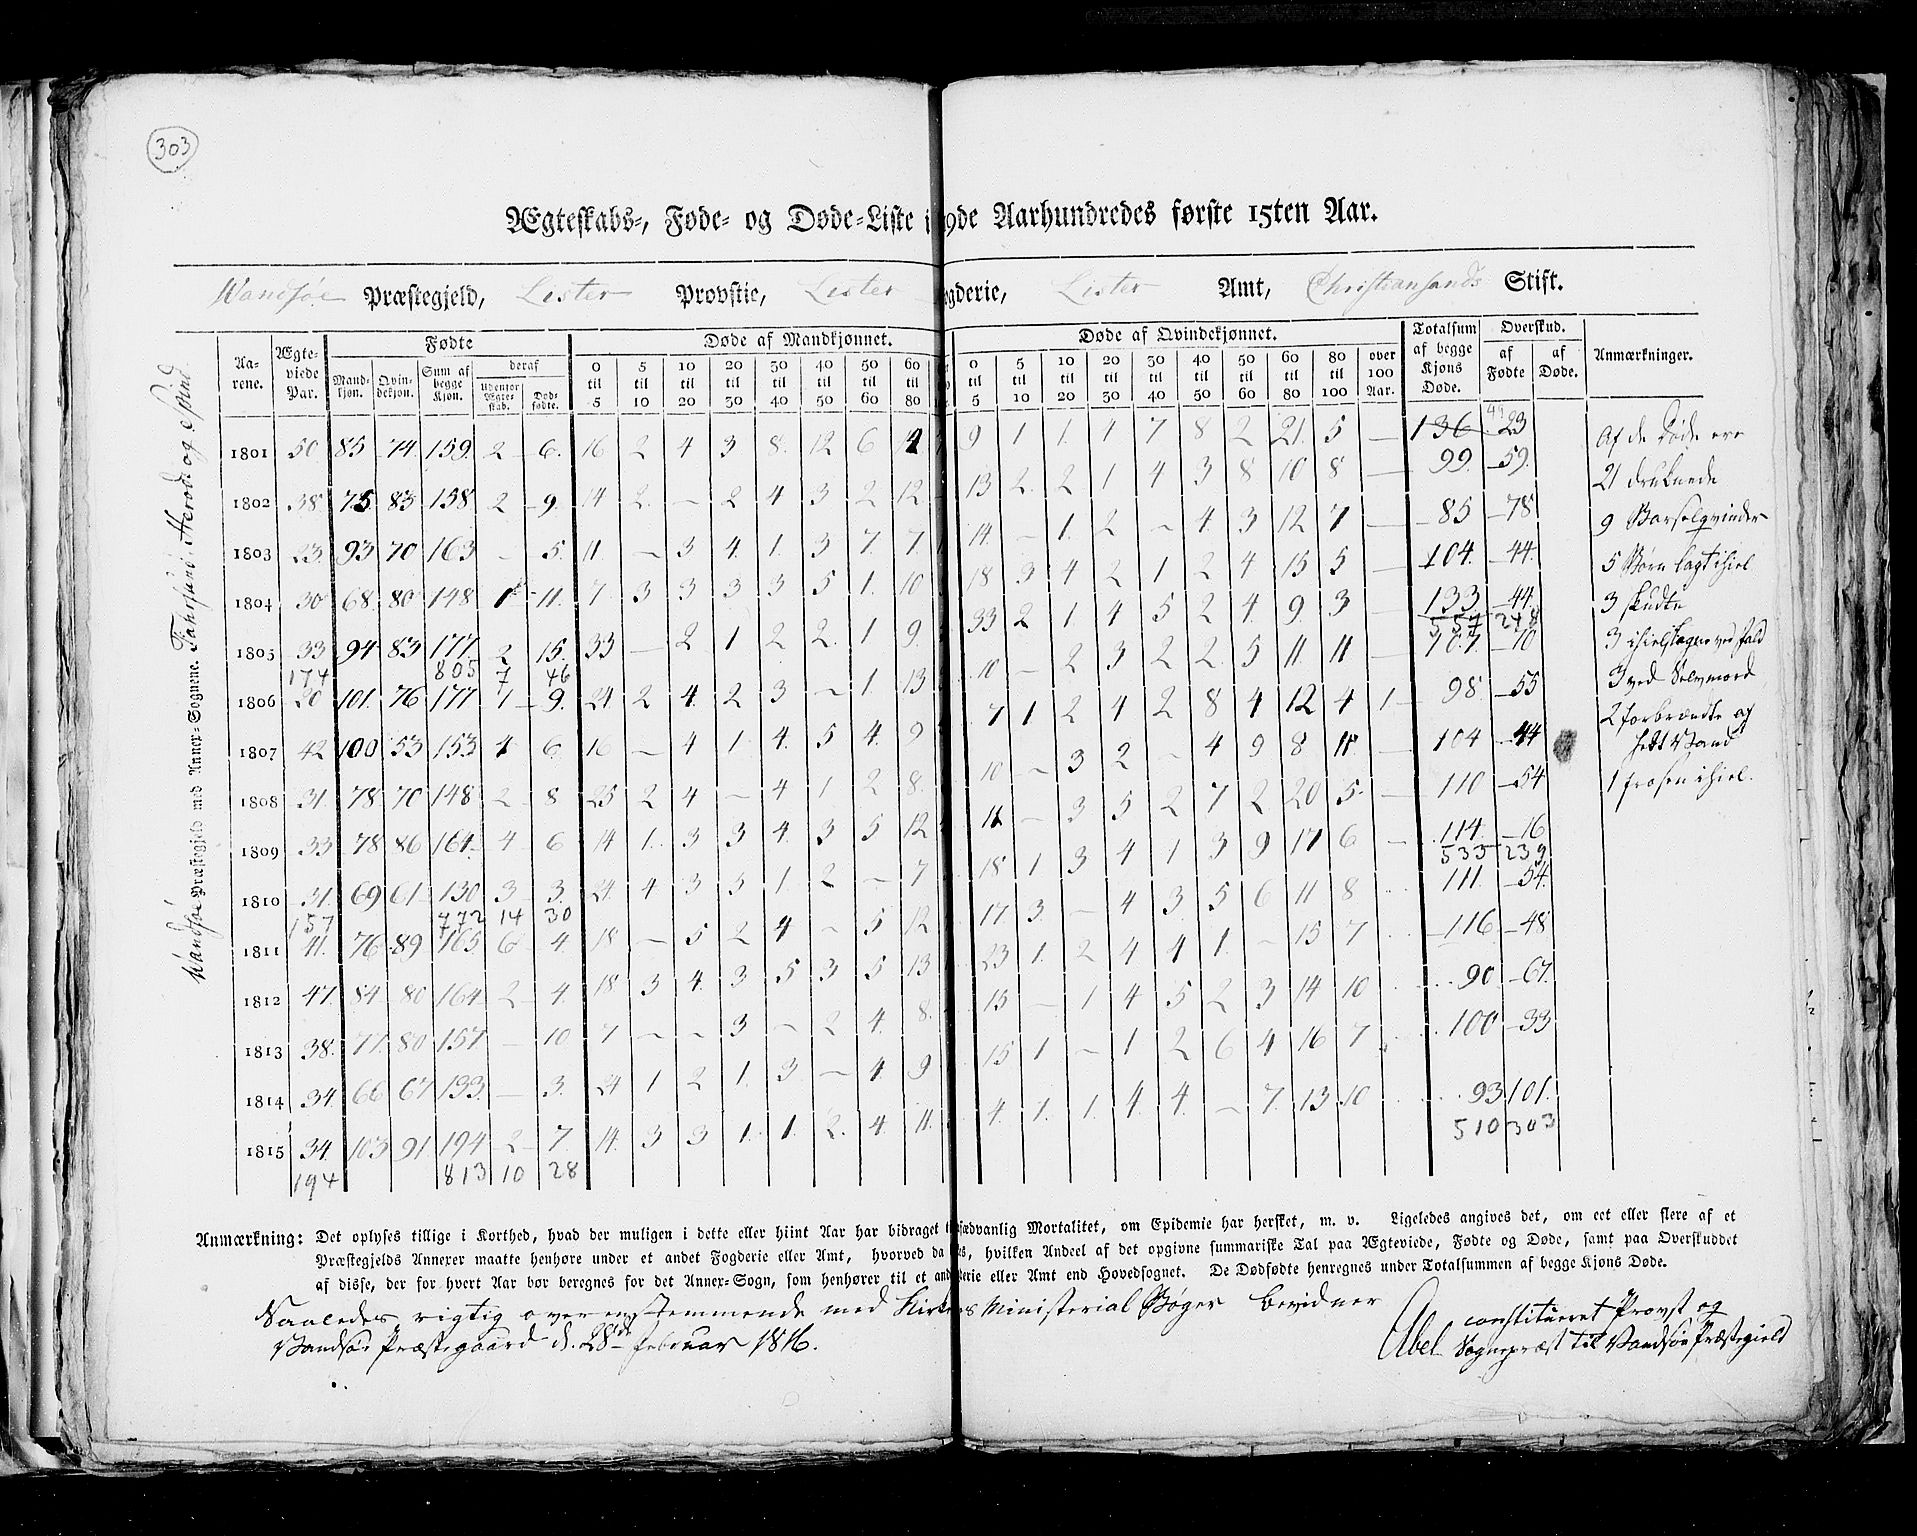 303
Ægteskabs-, Føde- og Døde-Liste i 19de Aarhundredes første 15ten Aar.
Wandsøe Præstegjeld, Lister Provstie, Lister ogderie, Lister Amt, Christiansands Stift.
Wandsøe Præstegjeld med Annex-Sognene. Fahrsund, Herod og Spind
Aarene. Ægteviede Par. Fødte Døde af Mandkjønnet. Døde af Qvindekjønnet. Totalsum af begge Kjøns Døde. Overskud. Anmærkninger.
Mandkjøn. Qvindekjøn. Sum af begge Kjøn. deraf Udenfor Ægteskab. Dødfødte. af Fødte af Døde.
0 til 5 5 til 10 10 til 20 20 til 30 30 til 40 40 til 50 50 til 60 60 til 80 0 til 5 5 til 10 10 til 20 20 til 30 30 til 40 40 til 50 50 til 60 60 til 80 80 til 100 over 100 Aar.
1801 50 85 74 159 2 6 16 2 4 3 8 12 6 9 1 1 4 7 8 2 21 5 — 136 23 Af de Døde ere
1802 38 75 83 158 2 9 14 2 — 2 4 3 2 12 13 2 2 1 4 3 8 10 8 — 99 59 21 druknede
1803 23 93 70 163 — 5 11 — 3 4 1 3 7 7 14 — 1 2 — 4 3 12 7 — 85 78 9 Barselqvinder
1804 30 68 80 148 1 11 7 3 3 3 3 5 1 10 18 3 4 2 1 2 4 15 5 — 104 44 5 Børn lagt ihiel
1805 33 94 83 177 2 15 33 — 2 1 2 2 1 9 33 2 1 4 5 2 4 9 3 — 133 44 3 skudte
174 805 7 46 557 248
1806 20 101 76 177 1 9 24 2 4 2 3 — 1 13 10 — 2 3 2 2 5 11 11 — 107 10 3 ihielslagne ved fald
1807 42 100 53 153 4 6 16 — 4 1 4 5 4 9 7 1 2 4 2 8 4 12 4 1 98 55 3 ved Selvmord
1808 31 78 70 148 2 8 25 2 4 — 4 1 2 8 10 — 3 2 — 4 9 8 11 — 104 44 2 forbrændte og hedt Vand
1809 33 78 86 164 4 6 14 1 3 3 4 3 5 12 11 — 3 5 2 7 2 20 5 — 110 54 1 frosen ihiel.
1810 31 69 61 130 3 3 24 4 3 5 1 2 — 7 18 1 3 4 1 3 9 17 6 — 114 16
157 772 14 30 533 239
1811 41 76 89 165 6 4 18 — 5 2 4 — 5 12 17 3 — 4 3 5 6 11 8 111 54
1812 47 84 80 164 2 4 18 3 4 3 5 3 5 13 23 1 2 4 4 1 — 15 7 116 48
1813 38 77 80 157 — 10 7 — — 3 — 2 4 8 15 — 1 4 5 2 3 14 10 90 67
1814 34 66 67 133 — 3 24 1 2 1 3 — 4 9 15 1 — 1 2 6 4 16 7 100 33
1815 34 103 91 194 2 7 14 3 3 1 1 2 4 11 4 1 1 4 4 — 7 13 10 93 101
194 813 10 28 510 303
Anmærkning: Det oplyses tillige i Korthed, hvad der muligen i dette eller hiint Aar har bidraget sædvanlig Mortalitet, om Epidemie har hersket, m. v. Ligeledes angives det, om eet eller flere af et
Præstegjelds Annexer maatte henhøre under et andet Fogderie eller Amt, hvorved da hvilken Andeel af det opgivne summariske Tal paa Ægteviede, Fødte og Døde, samt paa Overskuddet
af disse, der for hvert Aar bør beregnes for det Annex-Sogn, som henhører til et eller Amt end Hovedsognet. De Dødfødte henregnes under Totalsummen af begge Kjøns Døde.
Saaledes rigtig overensstemmende med Kirkens Ministerial Bøger bevidner
Vandsø Præstegaard d. 28de Februar 1816.
Abel constitueret Provst og
Sognepræst til Vandsøe Præstegield